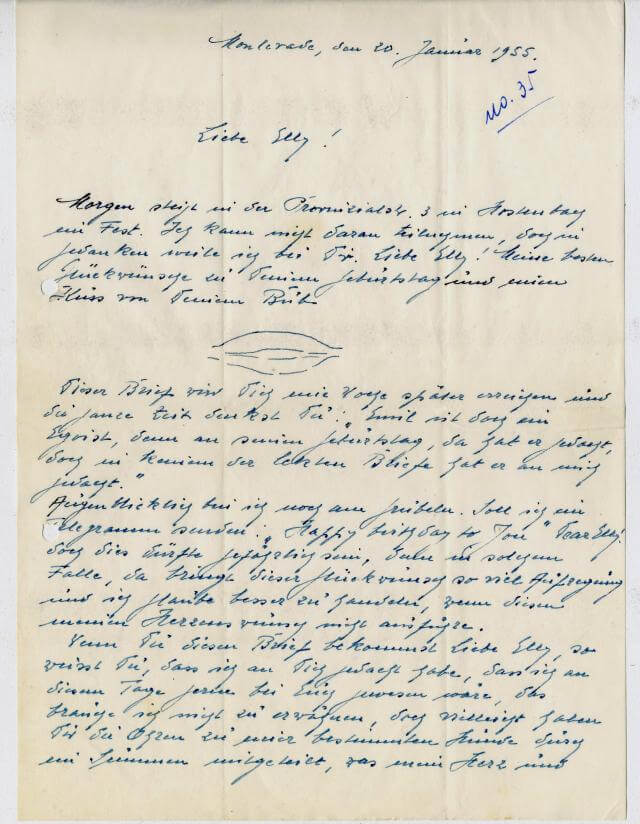 Monlevade, den 20. Januar 1955.
No. 35
Liebe Elly!
Morgen steigt in der Provinzialstr. 3 in Hostenbach
ein Fest. Ich kann nicht daran teilnehmen, doch in
Gedanken weile ich bei Dir. Liebe Elly! Meine besten
Glückwünsche zu Deinem Geburtstag und einen
Kuss von Deinem Bub
Dieser Brief wird Dich eine Woche später erreichen und
die ganze Zeit denkst Du: „Emil ist doch ein
Egoist, denn an seinen Geburtstag, da hat er gedacht,
doch in keinem der letzten Briefe hat er an mich
gedacht."
Augenblicklich bin ich noch am grübeln. Soll ich ein
Telegramm senden: „Happy birthday to You" Dear Elly!
doch dies dürfte gefährlich sein, denn in solchem
Falle, da bringt dieser Glückwunsch so viel Aufregung
und ich glaube besser zu handeln, wenn diesen
meinen Herzenswunsch nicht ausführe.
Wenn Du diesen Brief bekommst Liebe Elly, so
weisst Du, dass ich an Dich gedacht habe, dass ich an
diesem Tage gerne bei Euch gewesen wäre, das
brauche ich nicht zu erwähnen, doch vielleicht haben
Dir die Ohren zu einer bestimmten Stunde durch
ein Summen mitgeteilt, was mein Herz und